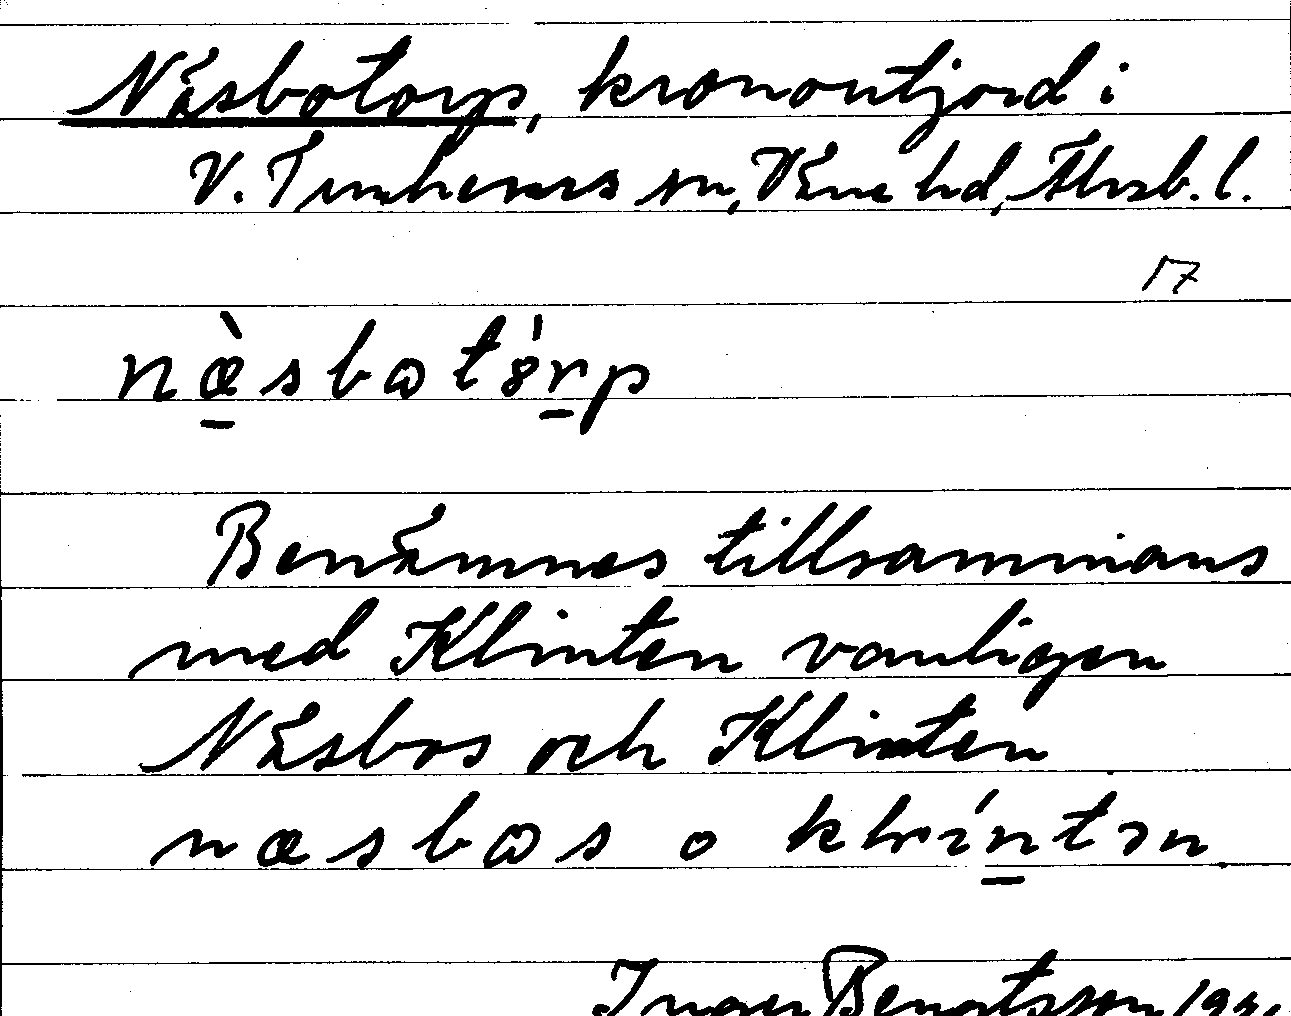 Näsbotorp, kronoutjord i
V. Tunhems sn, Väne hd, Älvsb. l.
17
næ̀sbɷtörp
Benämnes tillsammans
med Klinten vanligen
Näsbos och Klinten
næsbɷs o klíntən
Inger Bengtsson